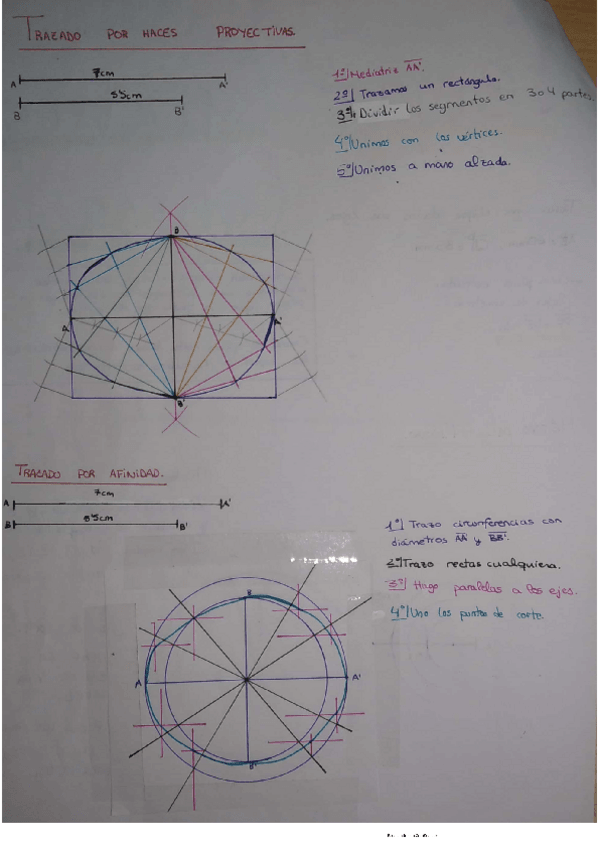 TRAZADO POR HACES PROYECTIVAS.
7cm
A A'
5'5cm
B B'
1º/ Mediatriz AA'.
2º/ Trazamos un rectángulo.
3º/ Dividir los segmentos en 3 o 4 partes.
4º/ Unimos con los vértices.
5º/ Unimos a mano alzada.
B
A A'
B'
TRAZADO POR AFINIDAD.
7cm
A A'
5'5cm
B B'
1º/ Trazo circunferencias con
diámetros AA' y BB'.
2º/ Trazo rectas cualquiera.
3º/ Hago paralelas a los ejes.
4º/ Uno los puntos de corte.
B
A A'
B'